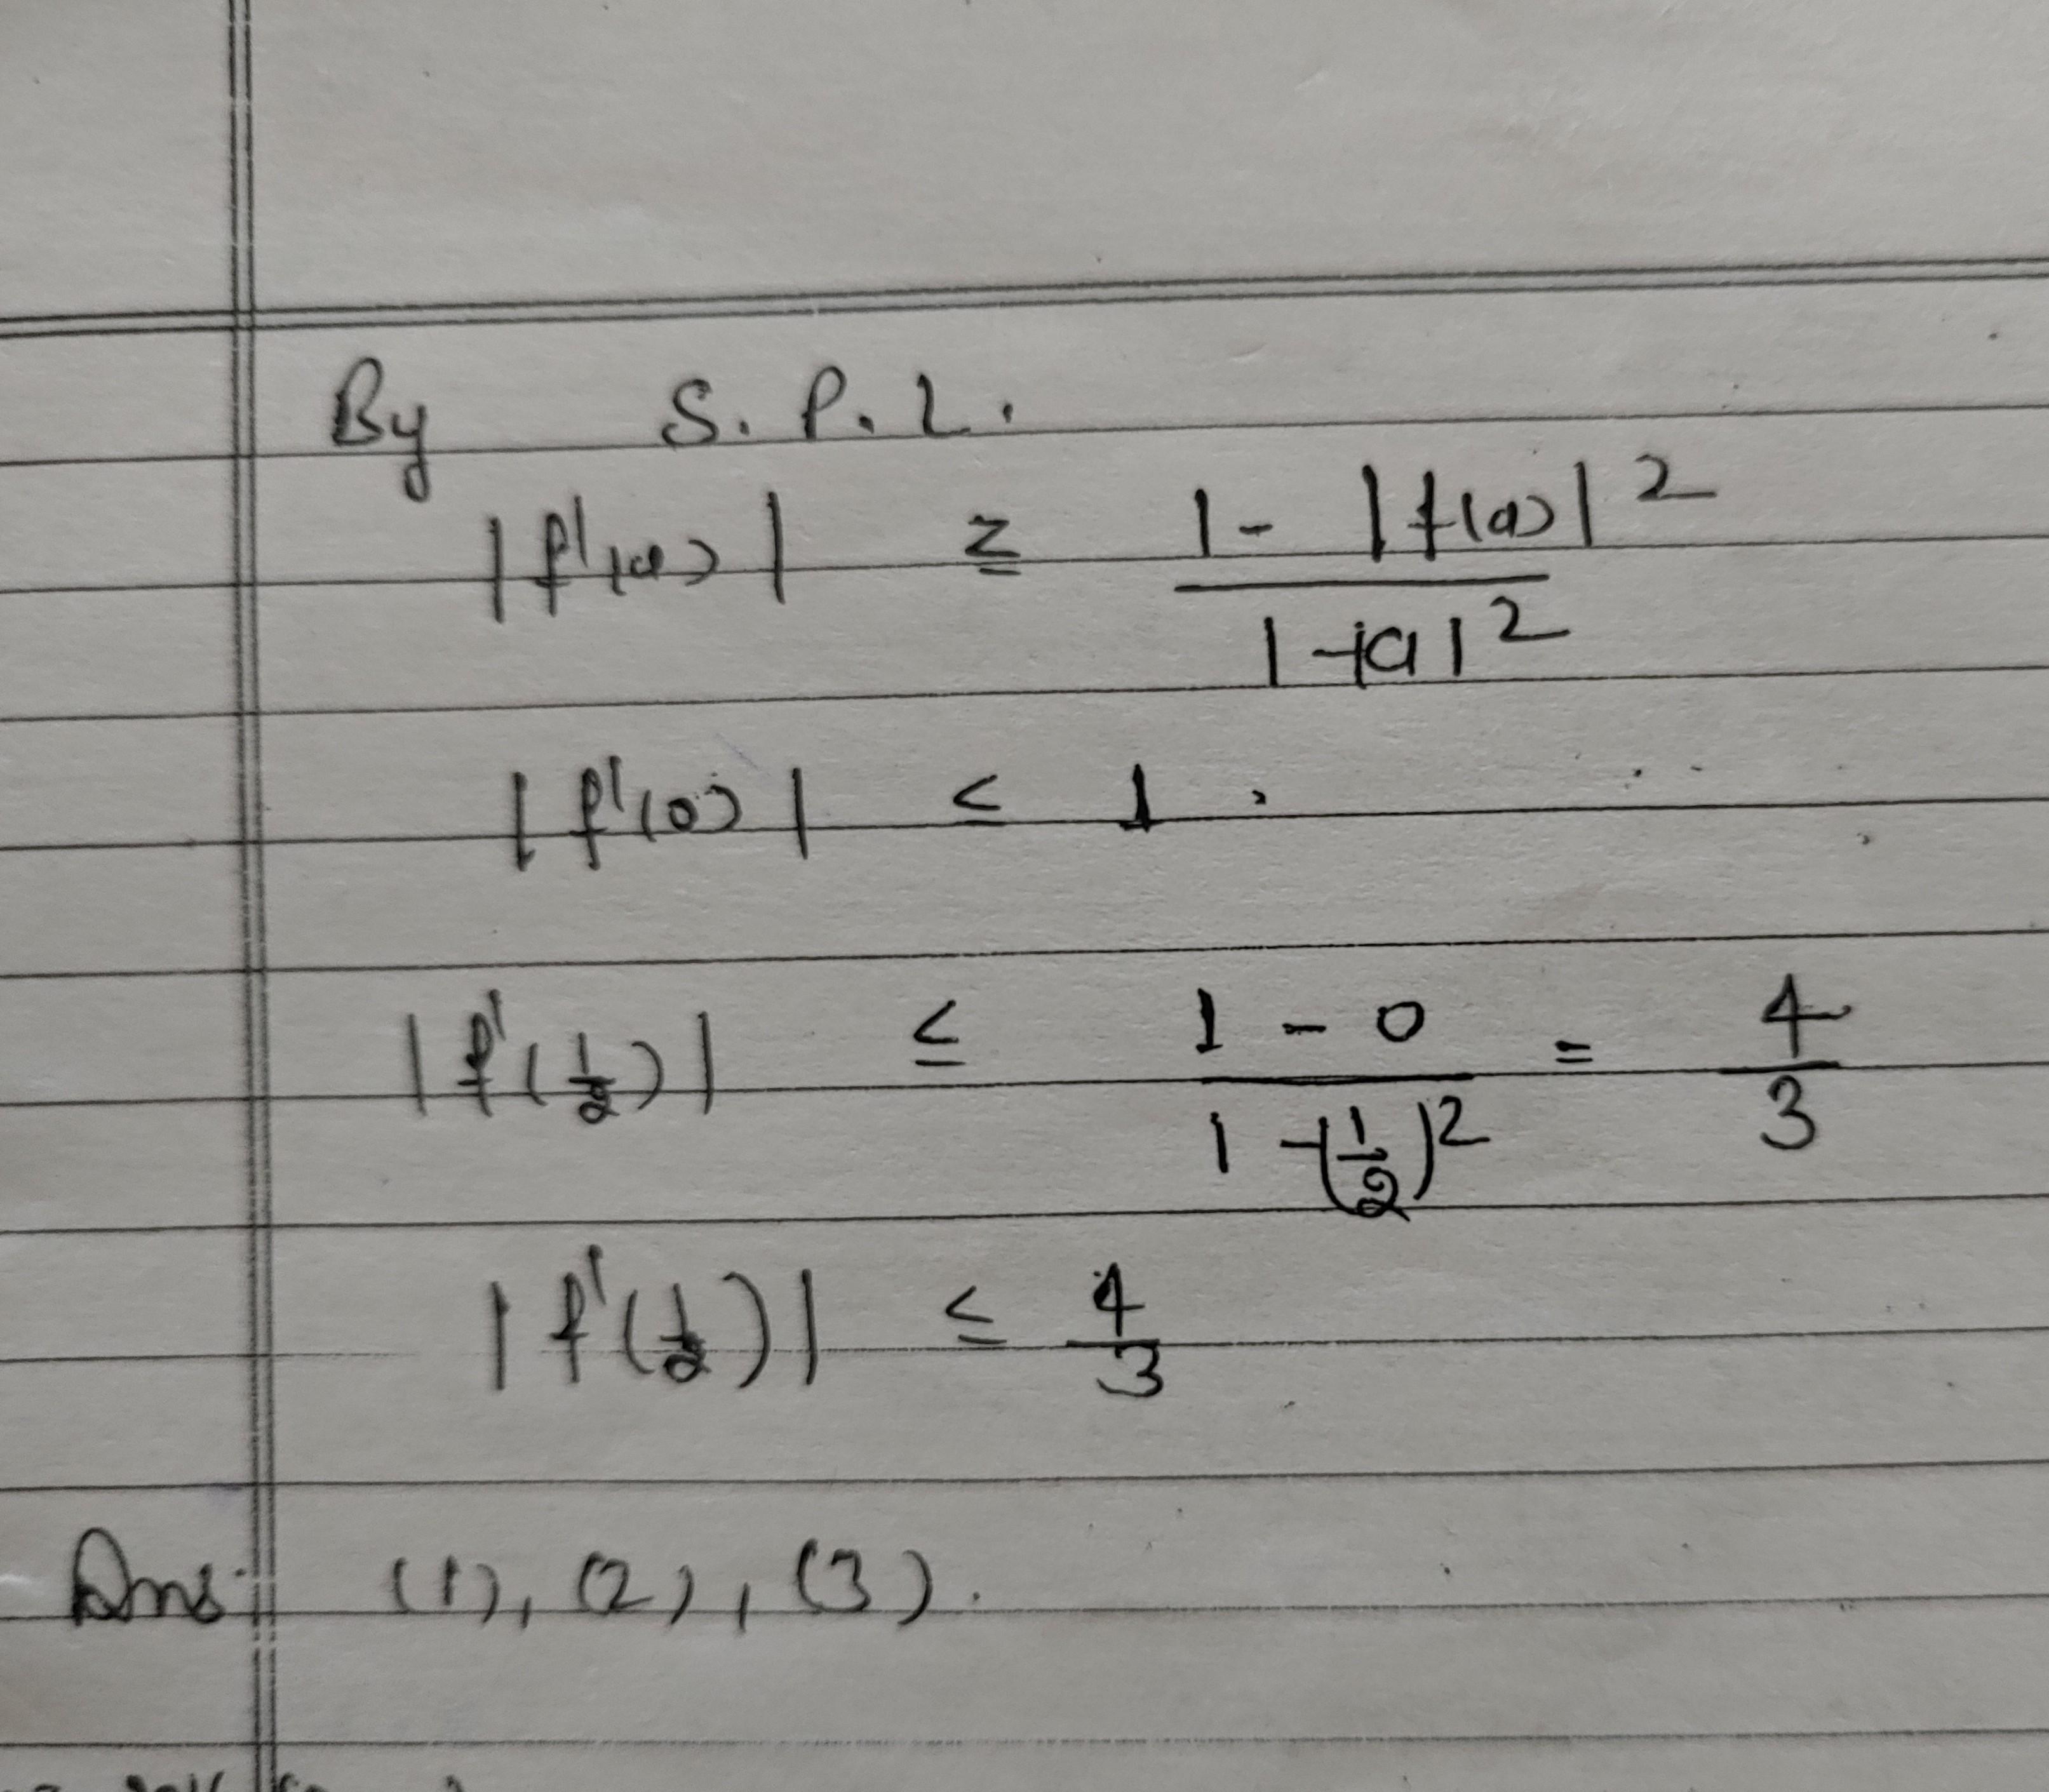 By S. P. L.
|f'(a)| ≥ \frac{1 - |f(a)|^2}{1 - |a|^2}
|f'(0)| ≤ 1.
|f'(\frac{1}{2})| ≤ \frac{1 - 0}{1 - (\frac{1}{2})^2} = \frac{4}{3}
|f'(\frac{1}{2})| ≤ \frac{4}{3}
Ans: (1), (2), (3).